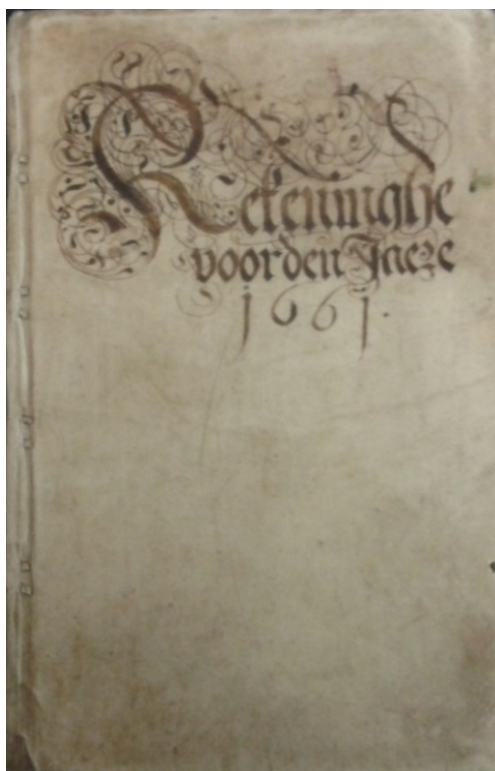 Rekeninghe
voorden Jaere
1661.